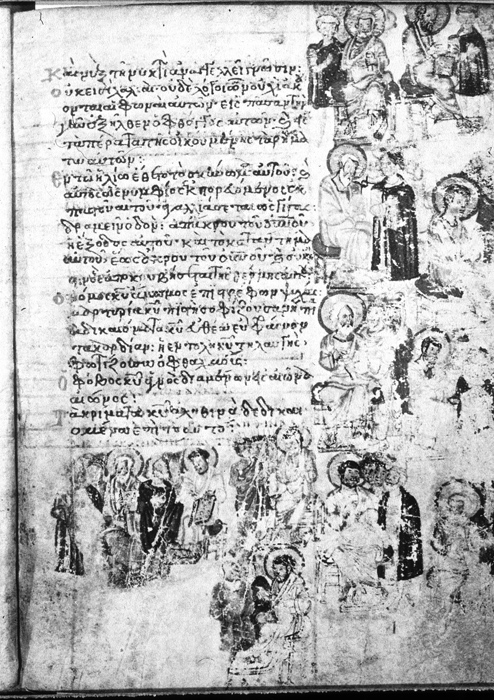 Καὶ νὺξ τῇ νυκτὶ ἀναγγέλλει γνῶσιν:
Οὐκ εἰσὶ λαλιαὶ οὐδὲ λόγοι ὧν οὐχὶ ἀκού
ονται αἱ φωναὶ αὐτῶν· εἰς πᾶσαν τὴν
γῆν ἐξῆλθεν ὁ φθόγγος αὐτῶν· καὶ εἰς
τὰ πέρατα τῆς οἰκουμένης τὰ ῥήμα
τα αὐτῶν:
Ἐν τῷ ἡλίῳ ἔθετο τὸ σκήνωμα αὐτοῦ· καὶ
αὐτὸς ὡς νυμφίος ἐκπορευόμενος ἐκ
παστοῦ αὐτοῦ· ἀγαλλιάσεται ὡς γίγας
δραμεῖν ὁδόν· ἀπ' ἄκρου τοῦ οὐνοῦ
ἡ ἔξοδος αὐτοῦ· καὶ τὸ κατάντημα
αὐτοῦ ἕως ἄκρου τοῦ οὐνοῦ· καὶ οὐκ
ἀποκρυβήσεται τῆς θέρμης
Ὁ νόμος κυ ἄμωμος ἐπιστρέφων ψυχάς·
ἡ μαρτυρία κυ πιστὴ σοφίζουσα νήπι
τὰ δικαιώματα κυ εὐθέα εὐφραίνον
τα καρδίαν: ἡ ἐντολὴ κυ τηλαυγὴς
φωτίζουσα ὀφθαλμούς:
Ὁ φόβος κυ ἁγνὸς διαμένων εἰς αἰῶνα
αἰῶνος:
Τὰ κρίματα κυ ἀληθινὰ δεδικαι
ωμένα ἐπὶ τὸ αὐτό: